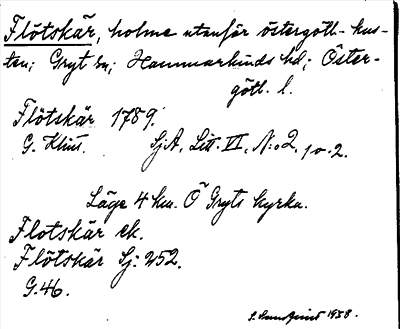 Flötskär, holme utanför östergötl- kus-
ten; Gryt sn; Hammarkinds hd; Öster-
götl. l.
Flötskär 1789.
G. Klint. SjA, Litt. VI, N:o 2, 10-2.
Läge 4 km. Ö Gryts kyrka.
Flotskär ek.
Flötskär Sj: 252.
G.46.
1938.